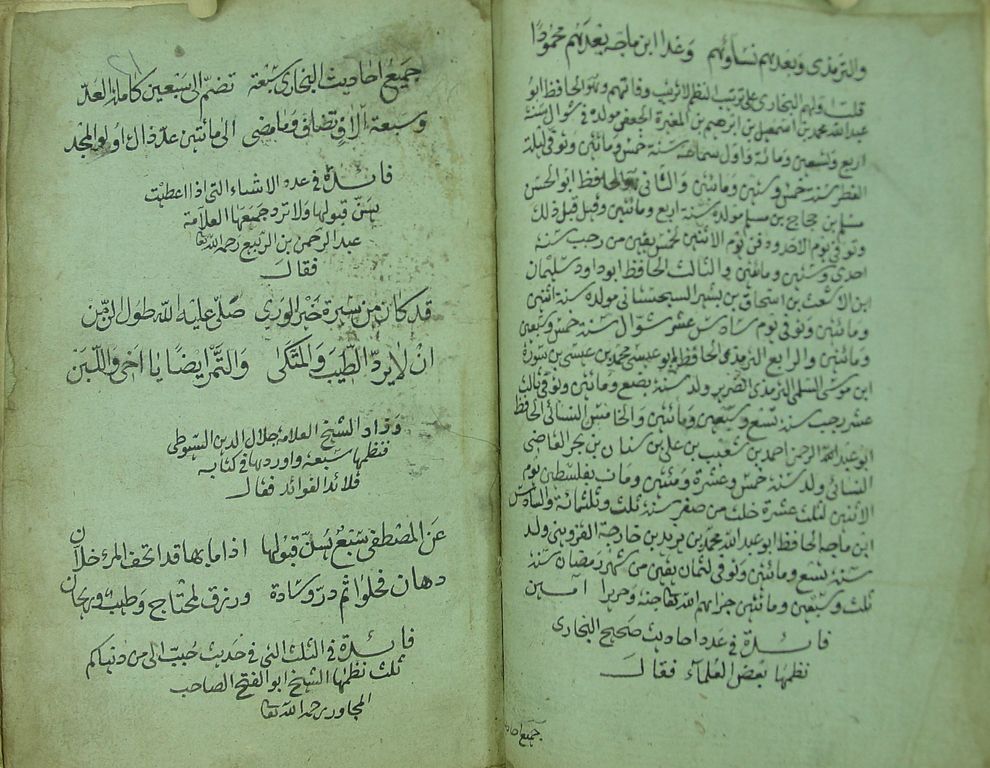 والترمذي وبعدهم نساؤهم وغدا ابن ماجه بعدهم محمودا
قلت اولهم البخاري على ترتيب النظم لا ترتيب وفاتهم وهو الحافظ ابو
عبد الله محمد بن اسمعيل بن ابراهيم بن المغيرة الجعفي مولده في شوال سنة
اربع وتسعين ومائة واول سماعه سنة خمس ومائتين وتوفي ليلة
الفطر سنة خمس وستين ومائتين والثاني الحافظ ابو الحسن
مسلم بن حجاج بن مسلم مولده سنة اربع ومائتين وقيل قبل ذلك
وتوفي يوم الاحد ودفن يوم الاثنين لخمس بقين من رجب سنة
احدى وستين ومائتين والثالث الحافظ ابو داود سليمان
ابن الاشعث بن اسحاق بن بشير السجستاني مولده سنة اثنتين
ومائتين وتوفي يوم سادس عشر شوال سنة خمس وسبعين
ومائتين والرابع الترمذي الحافظ ابو عيسى محمد بن عيسى بن سورة
ابن موسى السلمي الترمذي الضرير ولد سنة بضع ومائتين وتوفي ثالث
عشر رجب سنة تسع وسبعين ومائتين والخامس النسائي الحافظ
ابو عبد الرحمن احمد بن شعيب بن علي بن سنان بن بحر القاضي
النسائي ولد سنة خمس وعشرة ومئتين ومات بفلسطين يوم
الاثنين لثلث عشرة خلت من صفر سنة ثلث وثلثمائة والسادس
ابن ماجه الحافظ ابو عبد الله محمد بن يزيد بن خارجة القزويني ولد
سنة تسع ومائتين وتوفي لثمان بقين من شهر رمضان سنة
ثلث وسبعين ومائتين جزاهم الله تعا جنة وحريرا امين
فائدة في عدد احاديث صحيح البخاري
نظمها بعض العلماء فقال
جميع احاد
جميع احاديث البخاري سبعة تضم الى سبعين كاملة العد
وسبعة الاف تضاف وما مضى الى مائتين عد ذاك اولو المجد
فائدة في عدد الاشياء التي اذا اعطيت
يسن قبولها ولا ترد جمعها العلامة
عبد الرحمن بن الربيع رحمه الله تعا
فقال
قد كان من سيرة خير الورى صلى عليه الله طول الزمن
ان لا يرد الطيب والمتكى والتمر ايضا يا اخي واللبن
وزاد الشيخ العلامة جلال الدين السيوطي
فنظمها سبعة واوردها في كتابه
قلائد الفوائد فقال
عن المصطفى سبع يسن قبولها اذا ما بها قد اتحف المرء خلان
دهان فحلوا ثم در وسادة ورزق لمحتاج وطيب وريحان
فائدة في الثلث التي في حديث حبب الي من دنياكم
ثلث نظمها الشيخ ابو الفتح الصاحب
المجاور رحمه الله تعا